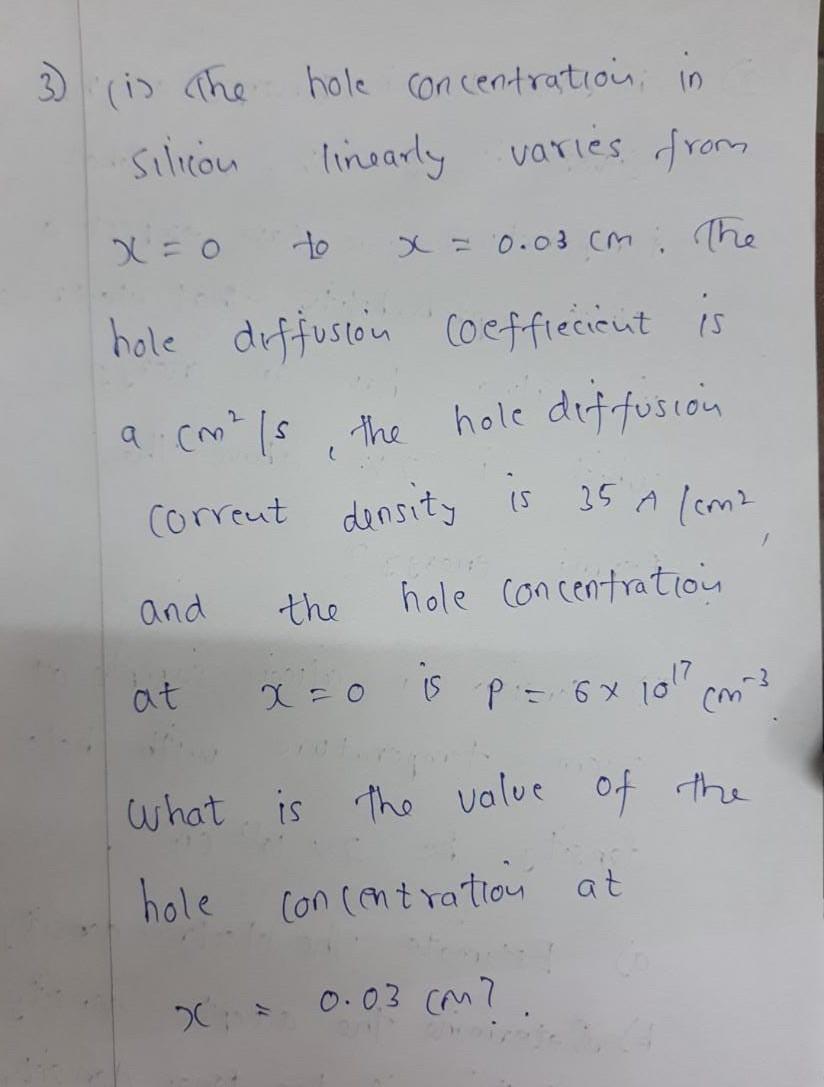 3) (i) The hole concentration in
silicon linearly varies from
x = 0 to x = 0.03 cm. The
hole diffusion coeffiecient is
a cm²/s, the hole diffusion
current density is 35 A/cm²,
and the hole concentration
at x = 0 is p = 6 x 10¹⁷ cm⁻³.
What is the value of the
hole concentration at
x = 0.03 cm?.